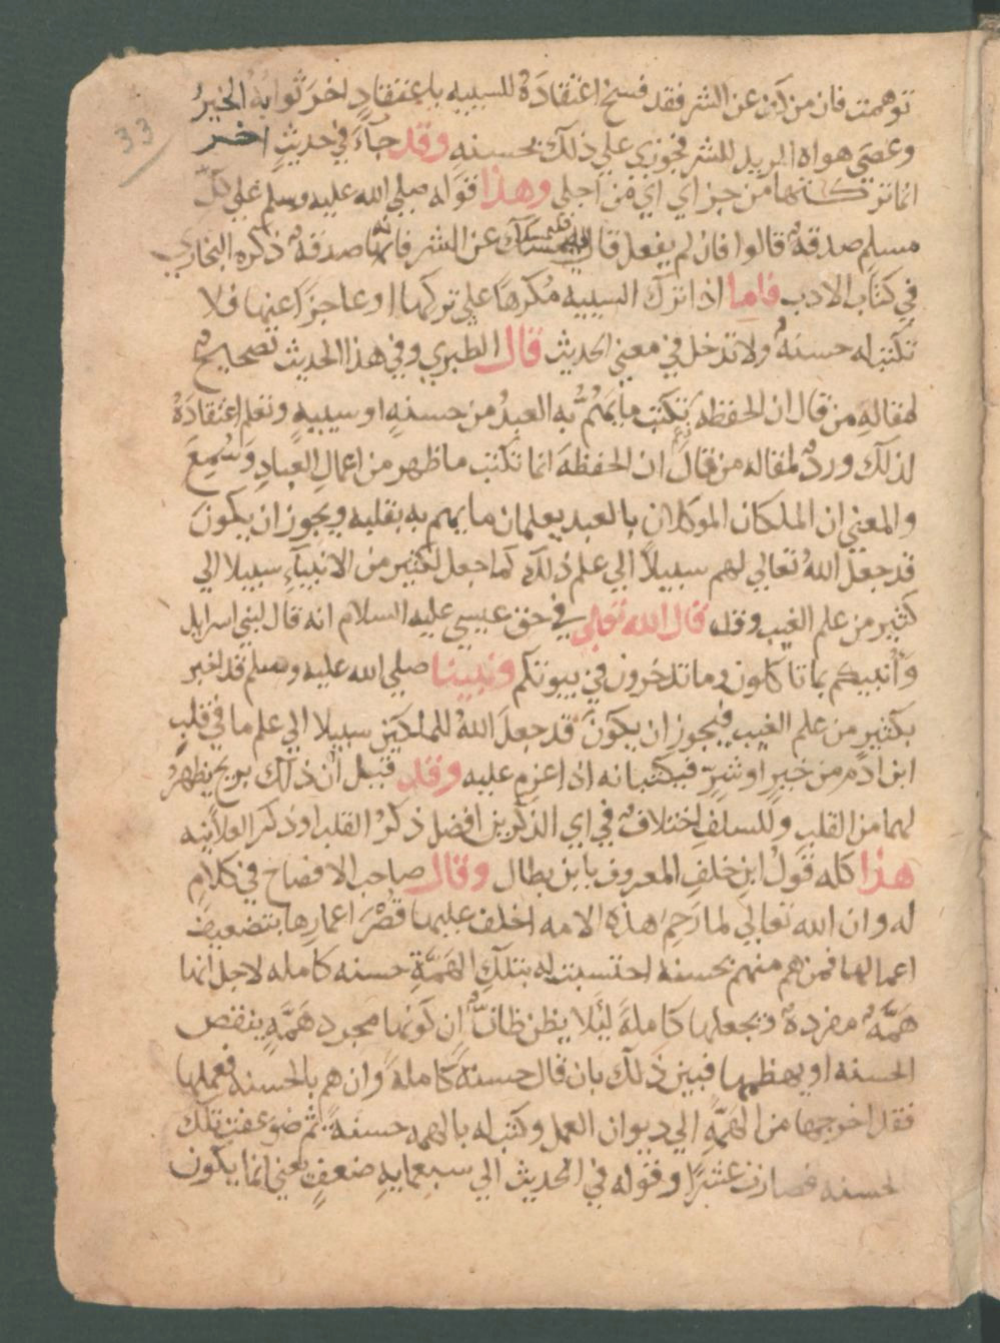 33
توهمت فان من كف عن الشر فقد فسخ اعتقادَهُ للسييه باعتقادٍ اخرَ ثوابه الخيرُ
وعصى هواه المريد للشر فجوزي علي ذلك بحسنهٍ وقد جآءَ في حديثٍ اخر
انما تركتها من جراي اي من اجلى وهذا قوله صلي الله عليه وسلم علي كلّ
مسلم صدقهٌ قالوا فان لم يفعل قال فليمسك عن الشر فانها صدقهٌ ذكره البخاري
في كتاب الادب فاما اذا ترك السييه مُكرهًا علي تركها او عاجزًا عنها فلا
تكتب له حسنهٌ ولا تدخل في معني الحديث قال الطبري وفي هذا الحديث تصحيحٌ
لمقالهِ من قال ان الحفظهَ تكتب ما يَهُمُّ به العبدُ من حسنهٍ او سييهٍ وتعلم اعتقادَهُ
لذلك وردٌ لمقاله من قال ان الحفظهَ انما تكتب ما ظهر من اعمالِ العبادِ وسُمِعَ
والمعني ان الملكان الموكلان بالعبد يعلمان ما يهم به بقلبه ويجوز ان يكونَ
قد جعل اللهُ تعالي لهم سبيلًا الي علم ذلك كما جعل لكثير من الانبيآءِ سبيلا الي
كثير من علم الغيب وقد قال الله تعالي في حق عيسي عليه السلام انه قال لبني اسرايل
وأنبيكم بما تاكلون وما تدخرون في بيوتكم ونبينا صلي الله عليه وسلم قد اخبر
بكثيرٍ من علم الغيب فيجوز ان يكونَ قد جعلَ اللهُ للملكين سبيلا الي علم ما في قلب
ابن ادم من خيرٍ او شرٍ فيكتبانه اذا عزم عليه وقد قيل ان ذلك بريح يظهرُ
لهما من القلب وللسلف اختلافٌ في اي الذكرين افضل ذكرُ القلب او ذكر العلانيه
هذا كله قولُ ابن خلفِ المعروف بابن بطال وقال صاحب الافصاح في كلامٍ
له وان الله تعالي لما رَحِمَ هذه الامه اخلف عليها قصْرَ اعمارِها بتضعيف
اعمالها فمن هم منهم بحسنه احتسبت له بتلك الهمّةِ حسنه كامله لاجل انها
همّهٌ مفردهٌ وجعلها كاملةً ليَلا يظن ظانٌّ ان كونها مجرد همّهٍ ينقص
الحسنه او يهضمها فبين ذلك بان قال حسنةً كاملهً وان هم بالحسنه فعملها
فقد اخرجها من الهمّهِ الي ديوان العمل وكتب له بالهمه حسنةً ثم ضوعفت تلك
لحسنه فصارت عشرًا وقوله في الحديث الي سبعمايهِ ضعفٍ يعني انما يكون